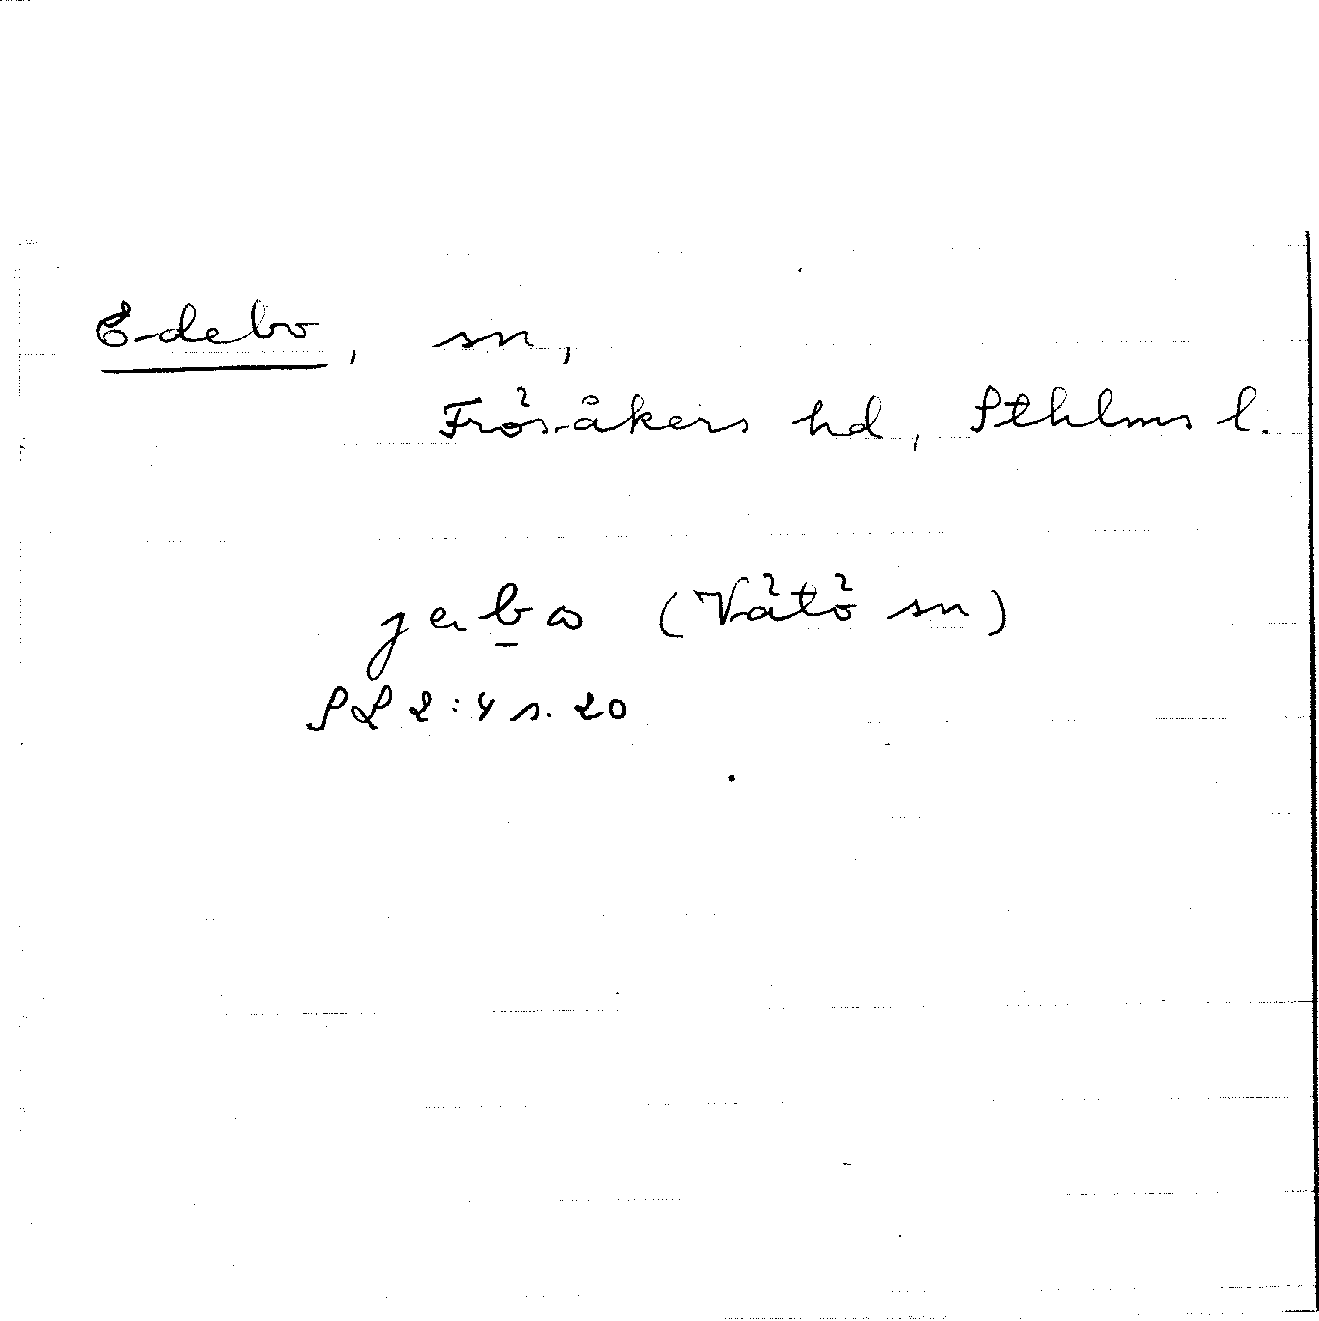 Edebo, sn,
Frösåkers hd, Sthlms l.
(Vätö sn)
SL 2:4 s. 20